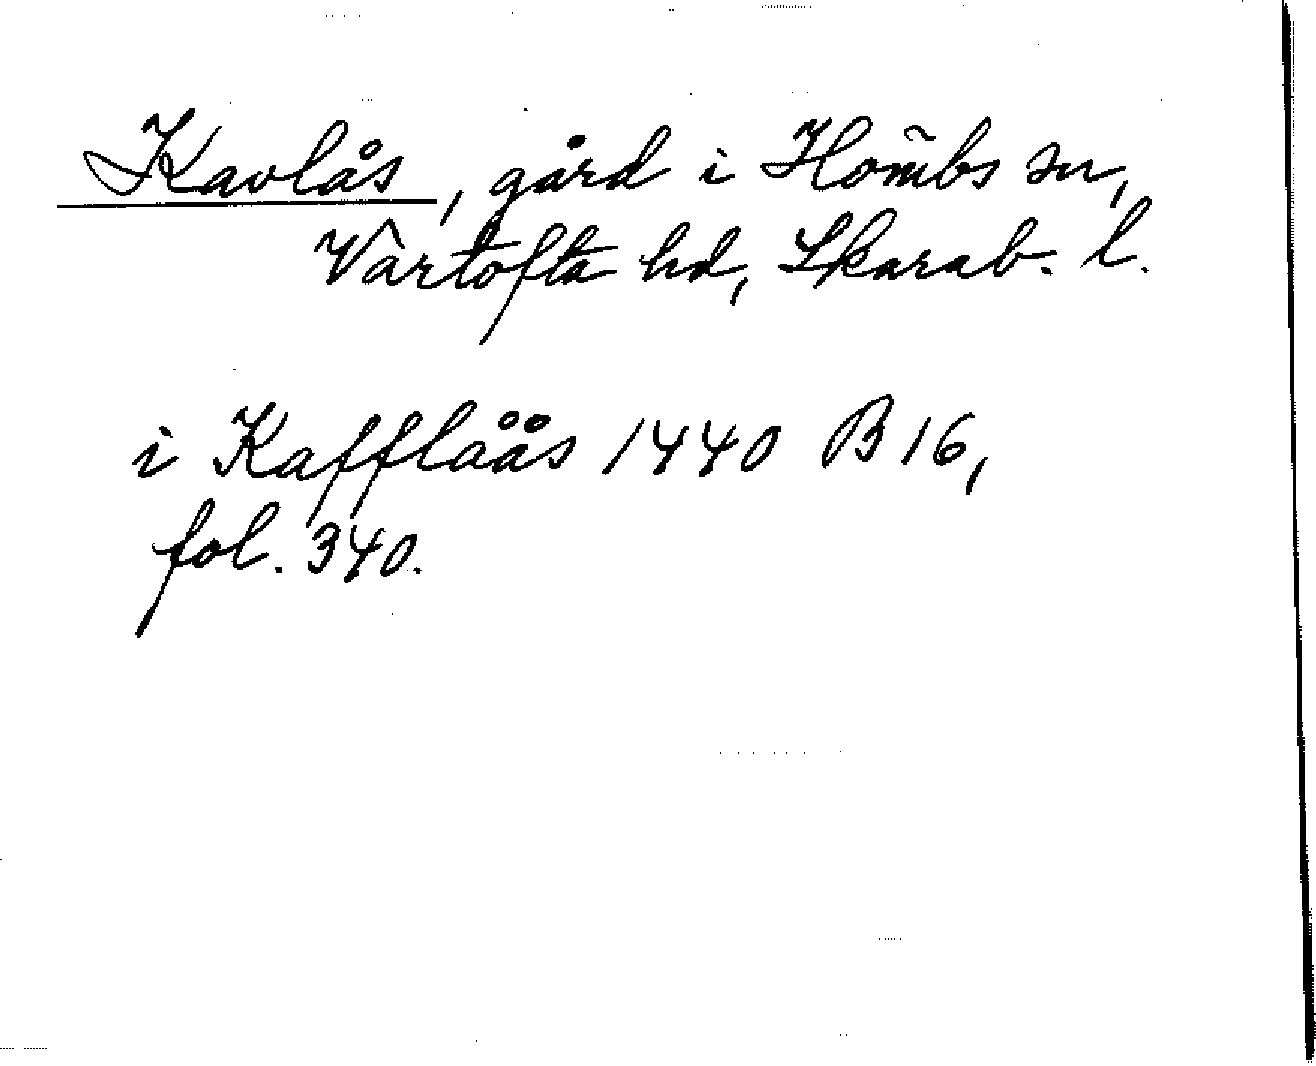 Kavlås, gård i Hom̃bs sn,
Vartofta hd, Skarab. l.
i Kaffláås 1440 B 16,
fol. 340.